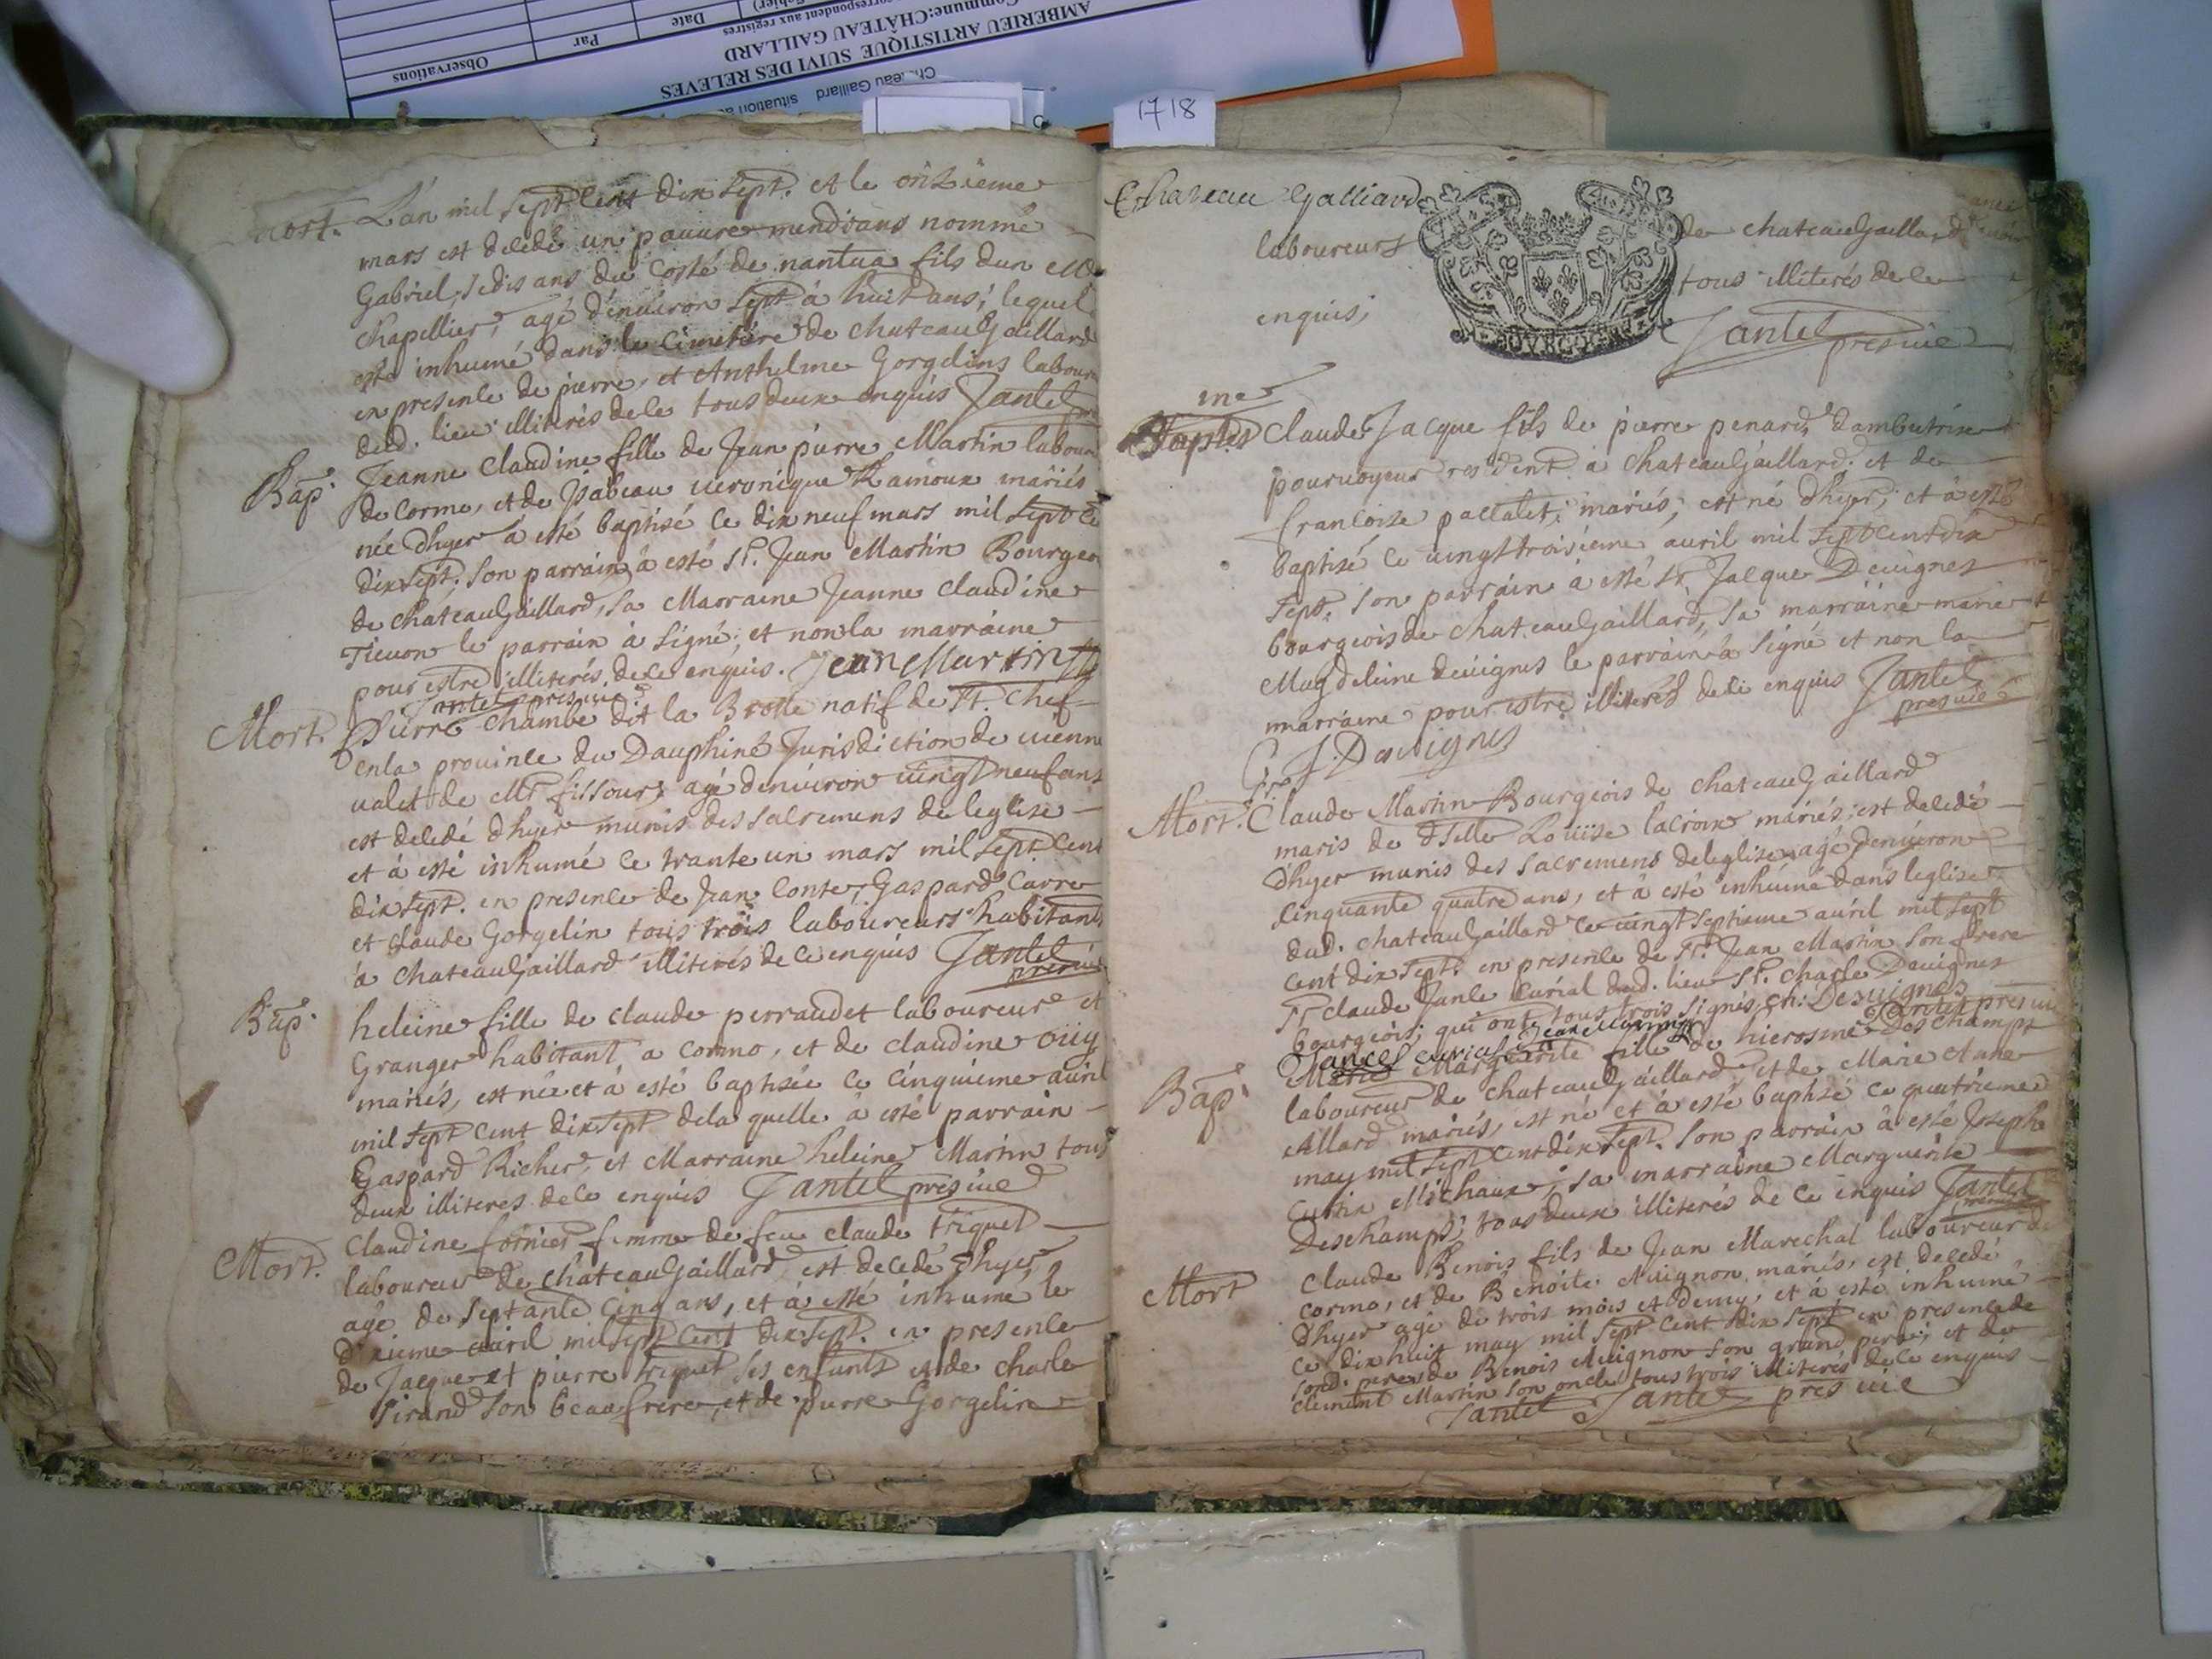 Observations
Par
Date
correspondent aux registres
Commune:CHÂTEAU GAILLARD
AMBERIEU ARTISTIQUE SUIVI DES RELEVES
Château Gaillard situation
1718
mort. L'an mil sept cent dix sept. et le onzieme
mars est decedé un pauvre mendians nommé
Gabriel, se dis ans du costé de nantua fils dun
chapellier, agé d'environ sept à huit ans, lequel
esté inhumé dans le cimetière de chateauGaillard
en presence de pierre, et Anthelme Gorgelins labour
dud. lieu illiterés de ce tous deux enquis Jantel
Bap. Jeanne Claudine fille de Jean pierre Martin labour
de Cormo, et de Isabeau veronique Ramoux mariés
née d'hyer à esté baptisé ce dix neuf mars mil sept ce
dix sept, son parrain à esté Sr. Jean Martin Bourgeo
de chateauGaillard, sa Marraine Jeanne Claudine
Tievon le parrain à signé, et non la marraine
pour estre illiterés de ce enquis. Jean Martin
Jantel presvie
Mort. Pierre Chambe dit la Brosse natif de St. Chef
en la province du Dauphiné Jurisdiction de vienne
valet de Mr. fissour, agé denviron vingt neuf ans
est decedé d'hyer munis des sacremens de leglise
et à esté inhumé ce trante un mars mil sept cent
dix sept. en presence de Jean Conte, Gaspard Carre
et Claude Gorgelin tous trois laboureurs habitants
à chateauGaillard illiterés de ce enquis Jantel
presvie
Bap. heleine fille de claude perraudet laboureur et
Granger habitant a Cormo, et de claudine
mariés, est née et à esté baptisée ce cinquieme avril
mil sept cent dix sept de la quelle à esté parrain
Gaspard Richer, et Marraine heleine Martin tous
deux illiteres de ce enquis Jantel presvie
Mort. Claudine fornier femme de feu claude triquet
laboureur de chateauGaillard est decedé d'hyer
agé de septante cinq ans, et a esté inhumé le
avril mil sept cent dix sept. en presence
de Jacque et pierre triquet ses enfants et de charle
Sirand son beaufrere, et de pierre Gorgelin
Chateau Galliard
laboureurs de chateauGaillard
enquis, tous illiterés de ce
Jantel
presvie
Baptes Claude Jacque fils de pierre penard, dambutrix
pourvoyeur resident à chateauGaillard. et de
francoise pallatet, mariés, est né d'hyer, et à esté
baptisé ce vingt troisieme avril mil sept cent dix
sept. son parrain à esté Sr Jacque Devignes
bourgeois de chateauGaillard, sa marraine marie
Magdeleine devignes le parrain à signé et non la
marraine pour estre illiteres de ce enquis Jantel
presvie
J. Devignes
Mort. Sr. Claude Martin Bourgeois de chateauGaillard
maris de dselle Loüise lacroix mariés, est decedé
d'hyer munis des sacremens de leglise, agé denviron
cinquante quatre ans, et à esté inhumé dans leglise
dud. chateauGaillard ce vingt septieme avril mil sept
cent dix sept. en presence de Sr. Jean Martin son frere
Sr claude Janle curial dud. lieu Sr. charle Devignes
bourgeois, qui ont tous trois signés, Ch: Devignes
Jean Martin
Jantel presvie
curial
Bap. Marie Marguerite fille de hierosme Deschamps
laboureur de chateauGaillard et de Marie Anne
Allard mariés, est né et à esté baptisé ce quatrieme
may mil sept cent dix sept. son parrain à esté Josephe
Curtin Michaux, sa marraine Marguerite
Deschamps, tous deux illiterés de ce enquis Jantel
presvie
Mort Claude Benois fils de Jean Marechal laboureur de
cormo, et de Benoite Avignon mariés, est decedé
d'hyer agé de trois mois et demy, et à esté inhumé
ce dix huit may mil sept cent dix sept en presence de
sond. pere, de Benois Avignon son grand pere, et de
clement Martin son oncle tous trois illiterés de ce enquis
Jantel Jantel presvie